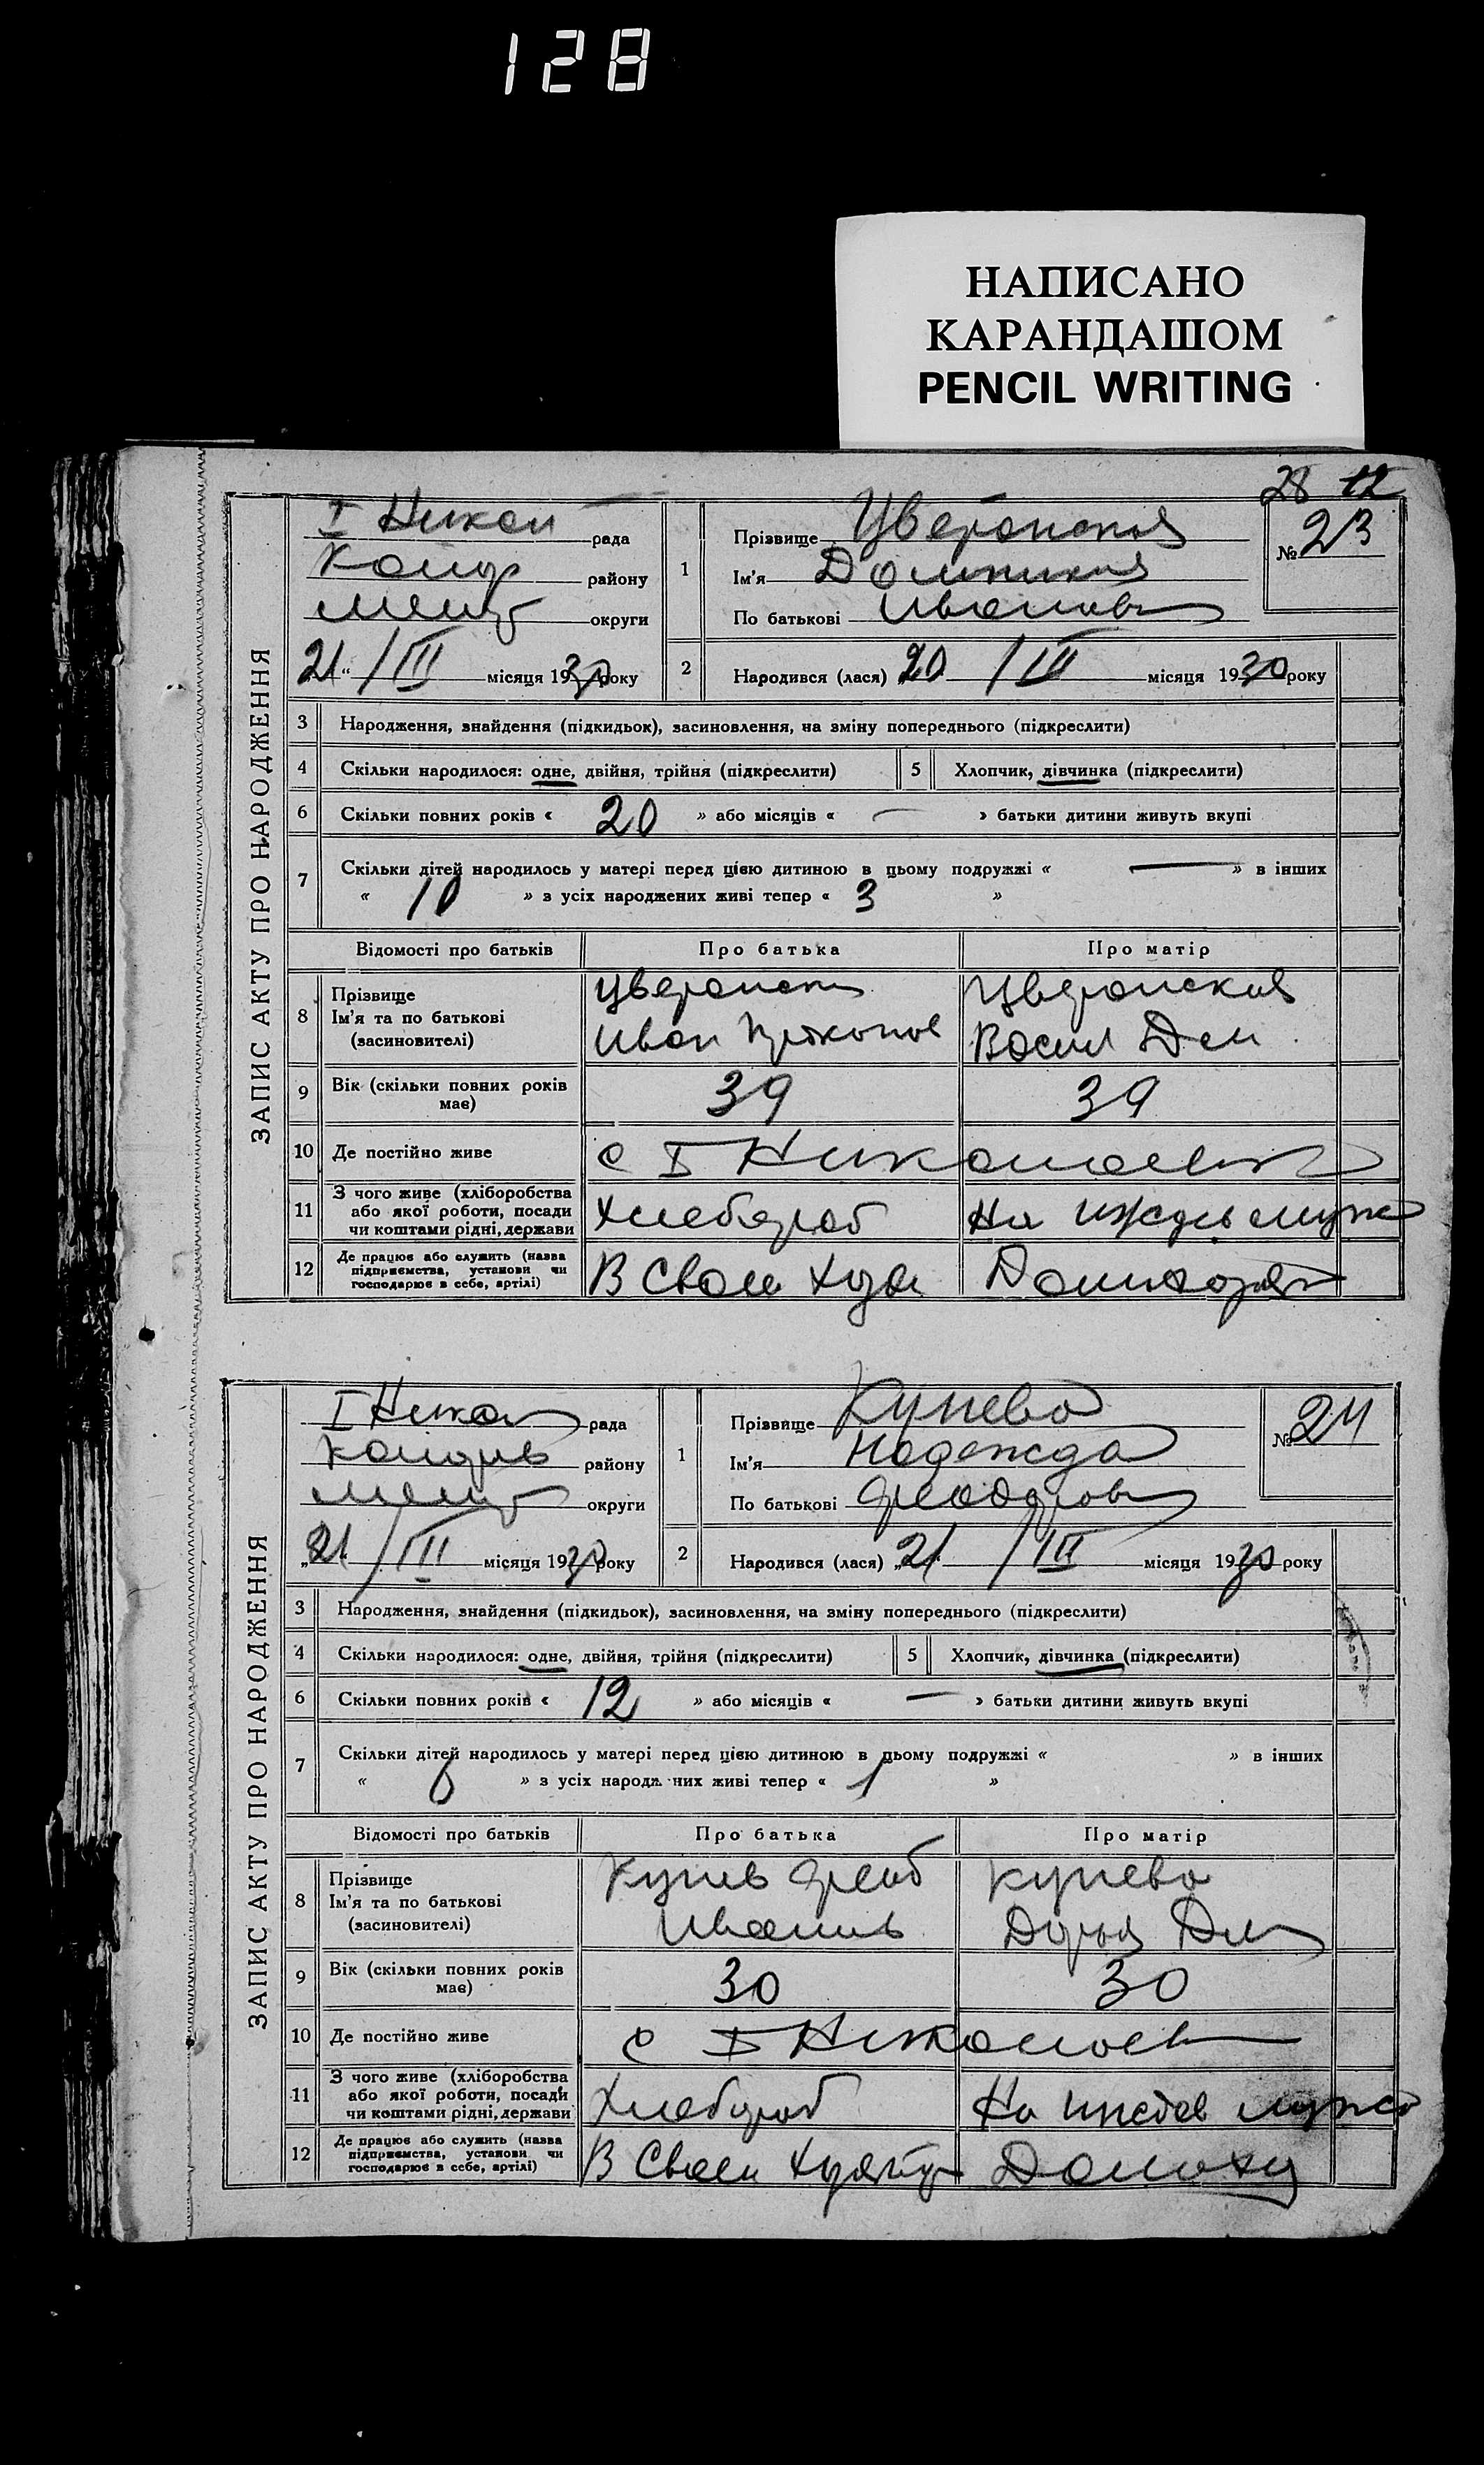 128
НАПИСАНО
КАРАНДАШОМ
PENCIL WRITING
28 12
ЗАПИС АКТУ ПРО НАРОДЖЕННЯ
I Никол рада
району
округи
21 “ / III місяця 1930 року
1 Прізвище
Ім'я Домникия
По батькові Иванов
№ 23
2 Народився (лася) 20 / III місяця 1930 року
3 Народження, знайдення (підкидьок), засиновлення, на зміну попереднього (підкреслити)
4 Скільки народилося: одне, двійня, трійня (підкреслити) 5 Хлопчик, дівчинка (підкреслити)
6 Скільки повних років « 20 » або місяців « — » батьки дитини живуть вкупі
7 Скільки дітей народилось у матері перед цією дитиною в цьому подружжі « — » в інших
« 10 » з усіх народжених живі тепер « 3 »
Відомості про батьків Про батька Про матір
8 Прізвище
Ім'я та по батькові Иван Прокопов Васил Дем
(засиновителі)
9 Вік (скільки повних років має) 39 39
10 Де постійно живе с I Николаевка
11 З чого живе (хліборобства
або якої роботи, посади Хлебороб На мужа
чи коштами рідні, держави
12 Де працює або служить (назва
підприємства, установи чи В Своем
господарює в себе, артілі)
ЗАПИС АКТУ ПРО НАРОДЖЕННЯ
I Никол рада
району
округи
„21“ / III місяця 1930 року
1 Прізвище Кунева
Ім'я Надежда
По батькові Феодоров
№ 24
2 Народився (лася) „21“ / III місяця 1930 року
3 Народження, знайдення (підкидьок), засиновлення, на зміну попереднього (підкреслити)
4 Скільки народилося: одне, двійня, трійня (підкреслити) 5 Хлопчик, дівчинка (підкреслити)
6 Скільки повних років « 12 » або місяців « — » батьки дитини живуть вкупі
7 Скільки дітей народилось у матері перед цією дитиною в цьому подружжі « » в інших
« 6 » з усіх народжених живі тепер « 1 »
Відомості про батьків Про батька Про матір
8 Прізвище Кунев Феод Кунева
Ім'я та по батькові Иванов Дарья Дм
(засиновителі)
9 Вік (скільки повних років має) 30 30
10 Де постійно живе с I Николаев
11 З чого живе (хліборобства
або якої роботи, посади Хлебороб На мужа
чи коштами рідні, держави
12 Де працює або служить (назва
підприємства, установи чи В Своем Домаху
господарює в себе, артілі)